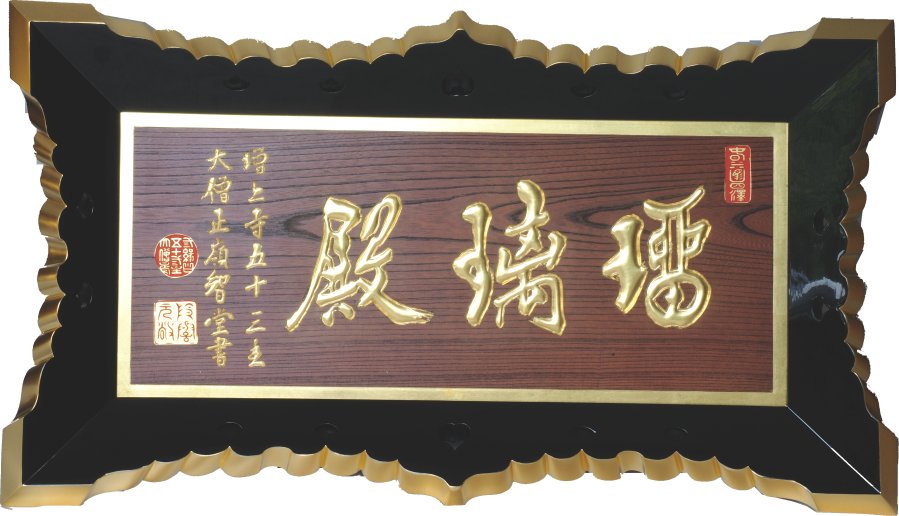 瑠璃殿
増上寺五十三主
大僧正順智堂書